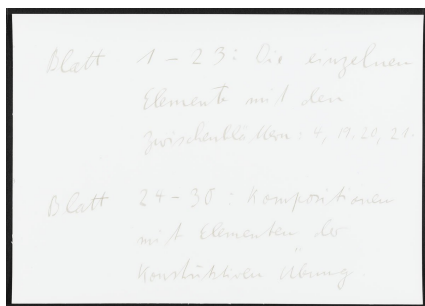 Blatt 1 - 23: Die einzelnen
Elemente mit den
Zwischenblättern: 4, 19. 20, 21.
Blatt 24 - 30: Kompositionen
mit Elementen der
Konstuktiven Übung.